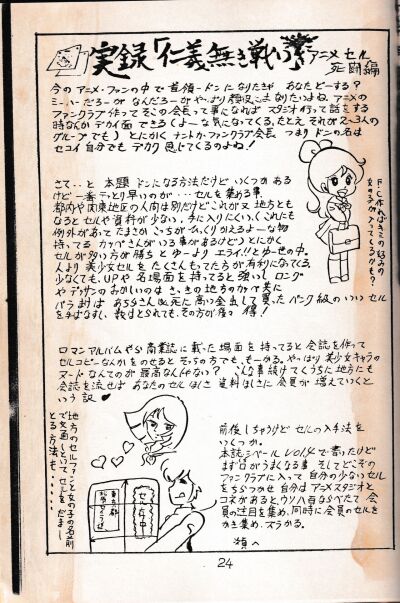 実録「仁義無き戦い」アニメセル死闘編
今のアニメ・ファンの中で首領-ドンになりたきゃ あなたどーする?
ミーハーだろーが なんだろーが やっぱり 顔役に なりたいよね。アニメの
ファンクラブ作って そこの会長って事になれば スタジオ行って話をする
時なんか デカイ面 できるくよーな気になってくる。たとえ それが2~3人の
グループでも) とにかく ナントカファンクラブ会長 つまり ドンの名は
セコイ自分でも デカク 思えてくるのよね!
さて..と 本題 ドンになる方法だけど いくつか ある
けど一番 てっとり早いのが・・・セルを集める事
都内や関東地区の人間は別だけど これが 又 地方とも
なると セルや資料が少ない、手に入りにくい。(これにも
例外があって たまさか こっちが ひっくりかえるよーな物
持ってる 方がいる事があるけど)とにかく
セルが多い方が勝ち とゆーより エライ!!とゆー世の中。
人より 美少女セルを たくさん もってた方が 有利になってくる。
少なくても、UPや 名場面を 持ってると 強いし ロング
や デッサンの おかしいのは
高い金出して 買った バンク級の いい セル
を 手ばなすし、
FC作ればキミの好みの
女の子が入ってくるかも?
ロマンアルバムやら 商業誌に載った場面を 持ってると 会誌を作って
セルコピーなんかを のせると そっちの方でも、もーかる。やっぱり 美少女キャラの
ヌードなんてのが 最高なんじゃない? こんな事続けてくうちに 地方にも
会誌を流せば あなたのセルほしさ 資料ほしさに 会員が 増えていくと
いう訳♥
地方のセルファンと女の子の名前
で文通しといてセルをだまし
とる方法も・・・・・
前後しちゃうけど セルの入手法を
いくつか。
本誌シベール VOL.2で 書いたけど
まず 口が うまくなる事 そして どこぞの
ファンクラブに入って 自分の少ないセル
を ちらつかせ 自分は アニメスタジオと
コネがあると、ウソ八百ならべたて 会
員の注目を集め、同時に会員のセルを
かき集め、ズラかる。
24